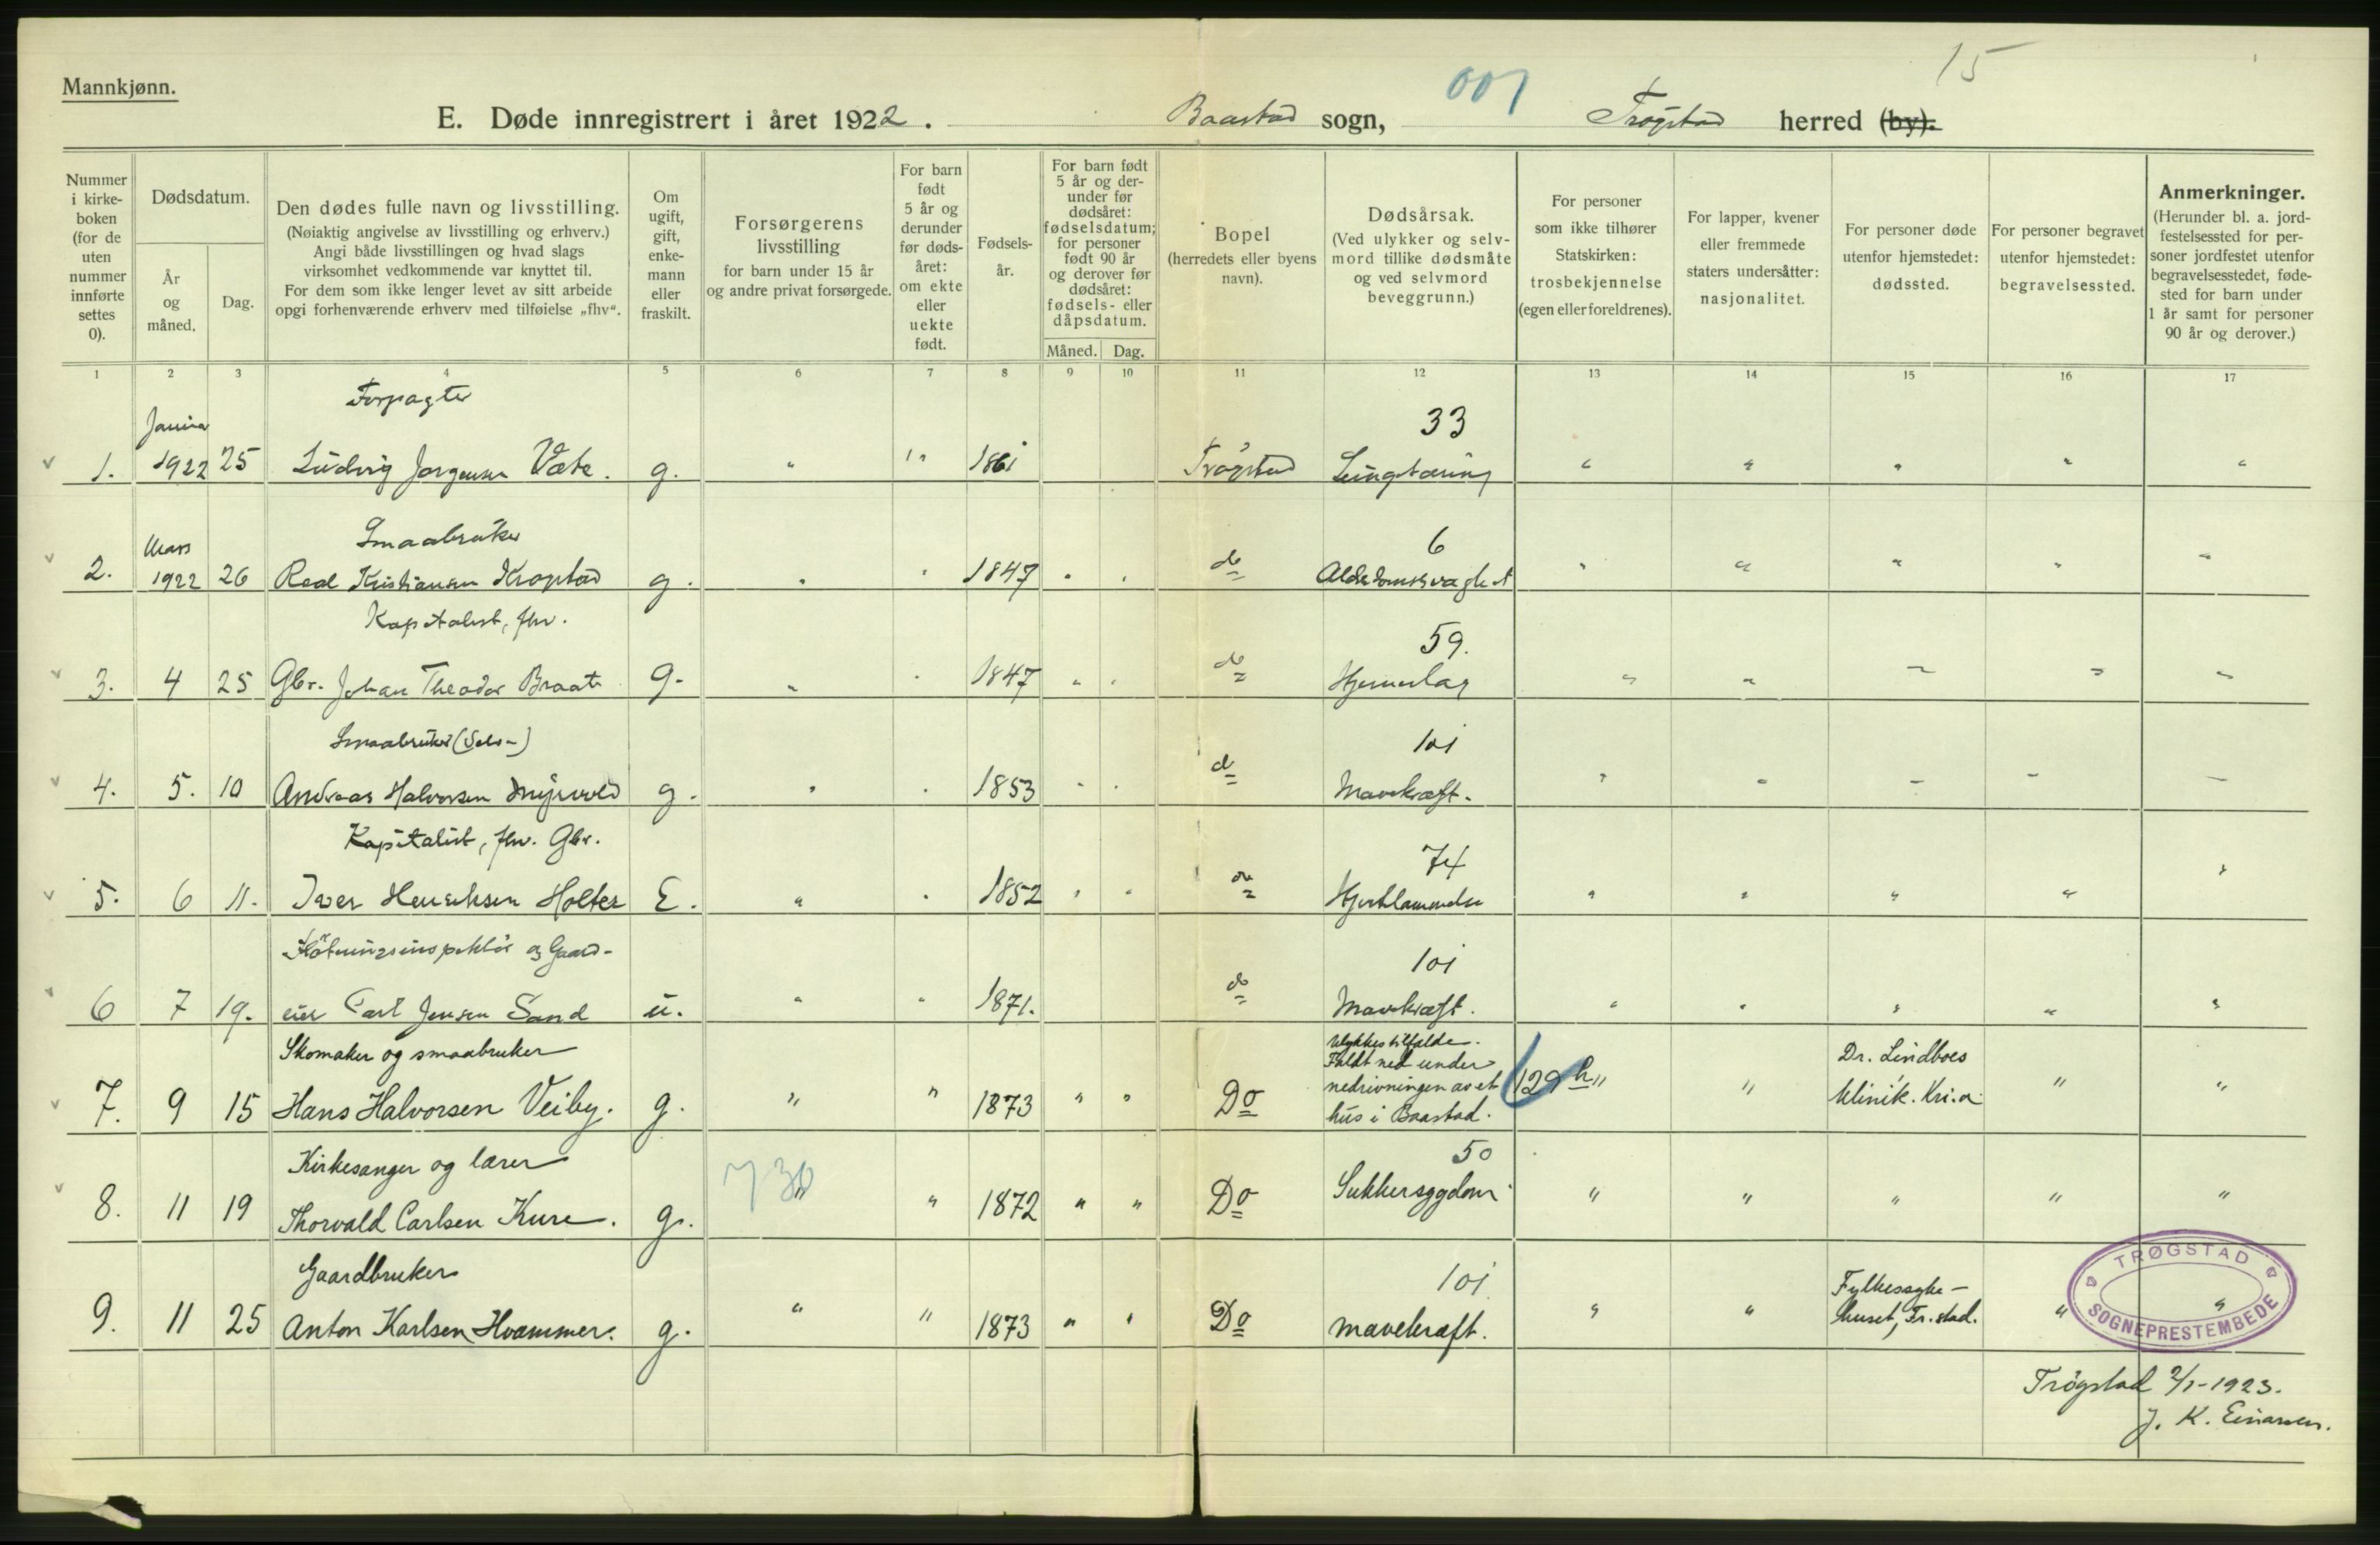 15
Mannkjønn.
001
E. Døde innregistrert i året 1922. Baastad sogn, Trøgstad herred (by).
Nummer i kirke-boken (for de uten nummer innførte settes 0).
Dødsdatum.
År og måned.
Dag.
Den dødes fulle navn og livsstilling.
(Nøiaktig angivelse av livsstilling og erhverv.)
Angi både livsstillingen og hvad slags
virksomhet vedkommende var knyttet til.
For dem som ikke lenger levet av sitt arbeide
opgi forhenværende erhverv med tilføielse „fhv“.
Om ugift, gift, enke-mann eller fraskilt.
Forsørgerens
livsstilling
for barn under 15 år
og andre privat forsørgede.
For barn født 5 år og derunder før døds-året: om ekte eller uekte født.
Fødsels-år.
For barn født 5 år og der-under før dødsåret: fødselsdatum; for personer født 90 år og derover før dødsåret: fødsels- eller dåpsdatum.
Måned. Dag.
Bopel
(herredets eller byens navn).
Dødsårsak.
(Ved ulykker og selv-mord tillike dødsmåte og ved selvmord beveggrunn.)
For personer som ikke tilhører Statskirken: trosbekjennelse (egen eller foreldrenes).
For lapper, kvener eller fremmede staters undersåtter: nasjonalitet.
For personer døde utenfor hjemstedet: dødssted.
For personer begravet utenfor hjemstedet: begravelsessted.
Anmerkninger.
(Herunder bl. a. jord-festelsessted for per-soner jordfestet utenfor begravelsesstedet, føde-sted for barn under 1 år samt for personer 90 år og derover.)
1 2 3 4 5 6 7 8 9 10 11 12 13 14 15 16 17
Forpagter 33
1. Januar 1922 25 Ludvig Jørgensen Væte. g. " " 1861 Trøgstad Lungetæring " " " " "
Smaabruker 6
2. Mars 1922 26 Kristiansen g. " " 1847 " " do Alderdomssvaghet " " " " "
Kapitalist, fhv. 59.
3. 4 25 Gbr. Johan Theodor Braate g. " " 1847 " " do Hjerneslag " " " " "
Smaabruker (Selv-) 101
4. 5. 10 Andreas Halvorsen Myrvold g. " " 1853 " " do Mavekræft. " " " " "
Kapitalist, fhv. Gbr. 74
5. 6 11. Iver Henriksen Holter E. " " 1852 " " do Hjertelammelse " " " " "
Fløtningsinspektør og Gaard- 101
6 7 19. eier Carl Jensen Sand u. " " 1871. do Mavekræft. " " " " "
Skomaker og smaabruker Ulykkestilfælde. Faldt ned under nedrivningen av et hus i Baastad. 129 h Dr. Lindboes klinik. Kri.a
7. 9 15 Hans Halvorsen Veiby. g. " " 1873 " " Do " " " "
Kirkesanger og lærer 730 50
8. 11 19 Thorvald Carlsen Kure. g. " " 1872 " " Do Sukkersygdom " " " " "
Gaardbruker 101 Fylkessyke-
9. 11 25 Anton Karlsen Hvammer. g. " " 1873 " " Do mavekræft. " " huset, Fr.stad. " "
TRØGSTAD
SOGNEPRESTEMBEDE
Trøgstad 2/1-1923.
J. K. Einarsen.